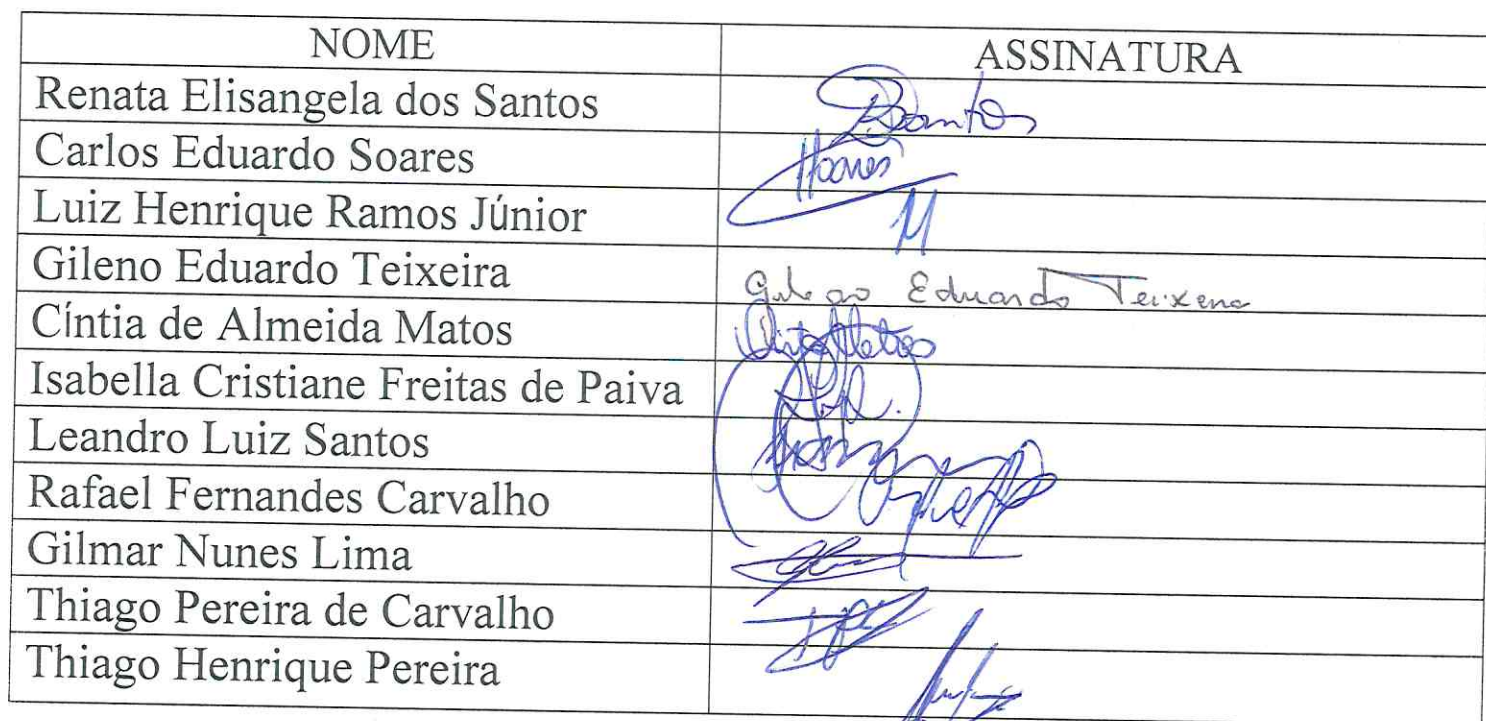 NOME ASSINATURA
Renata Elisangela dos Santos
Carlos Eduardo Soares
Luiz Henrique Ramos Júnior
Gileno Eduardo Teixeira Eduardo Teixeira
Cíntia de Almeida Matos
Isabella Cristiane Freitas de Paiva
Leandro Luiz Santos
Rafael Fernandes Carvalho
Gilmar Nunes Lima
Thiago Pereira de Carvalho
Thiago Henrique Pereira